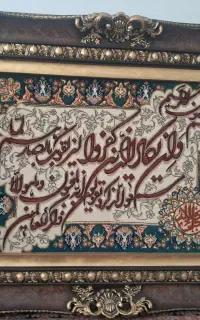 وان يكاد الذين كفروا ليزلقونك بابصارهم لما
سمعوا الذكر ويقولون انه لمجنون وما هو الا
ذكر للعالمين